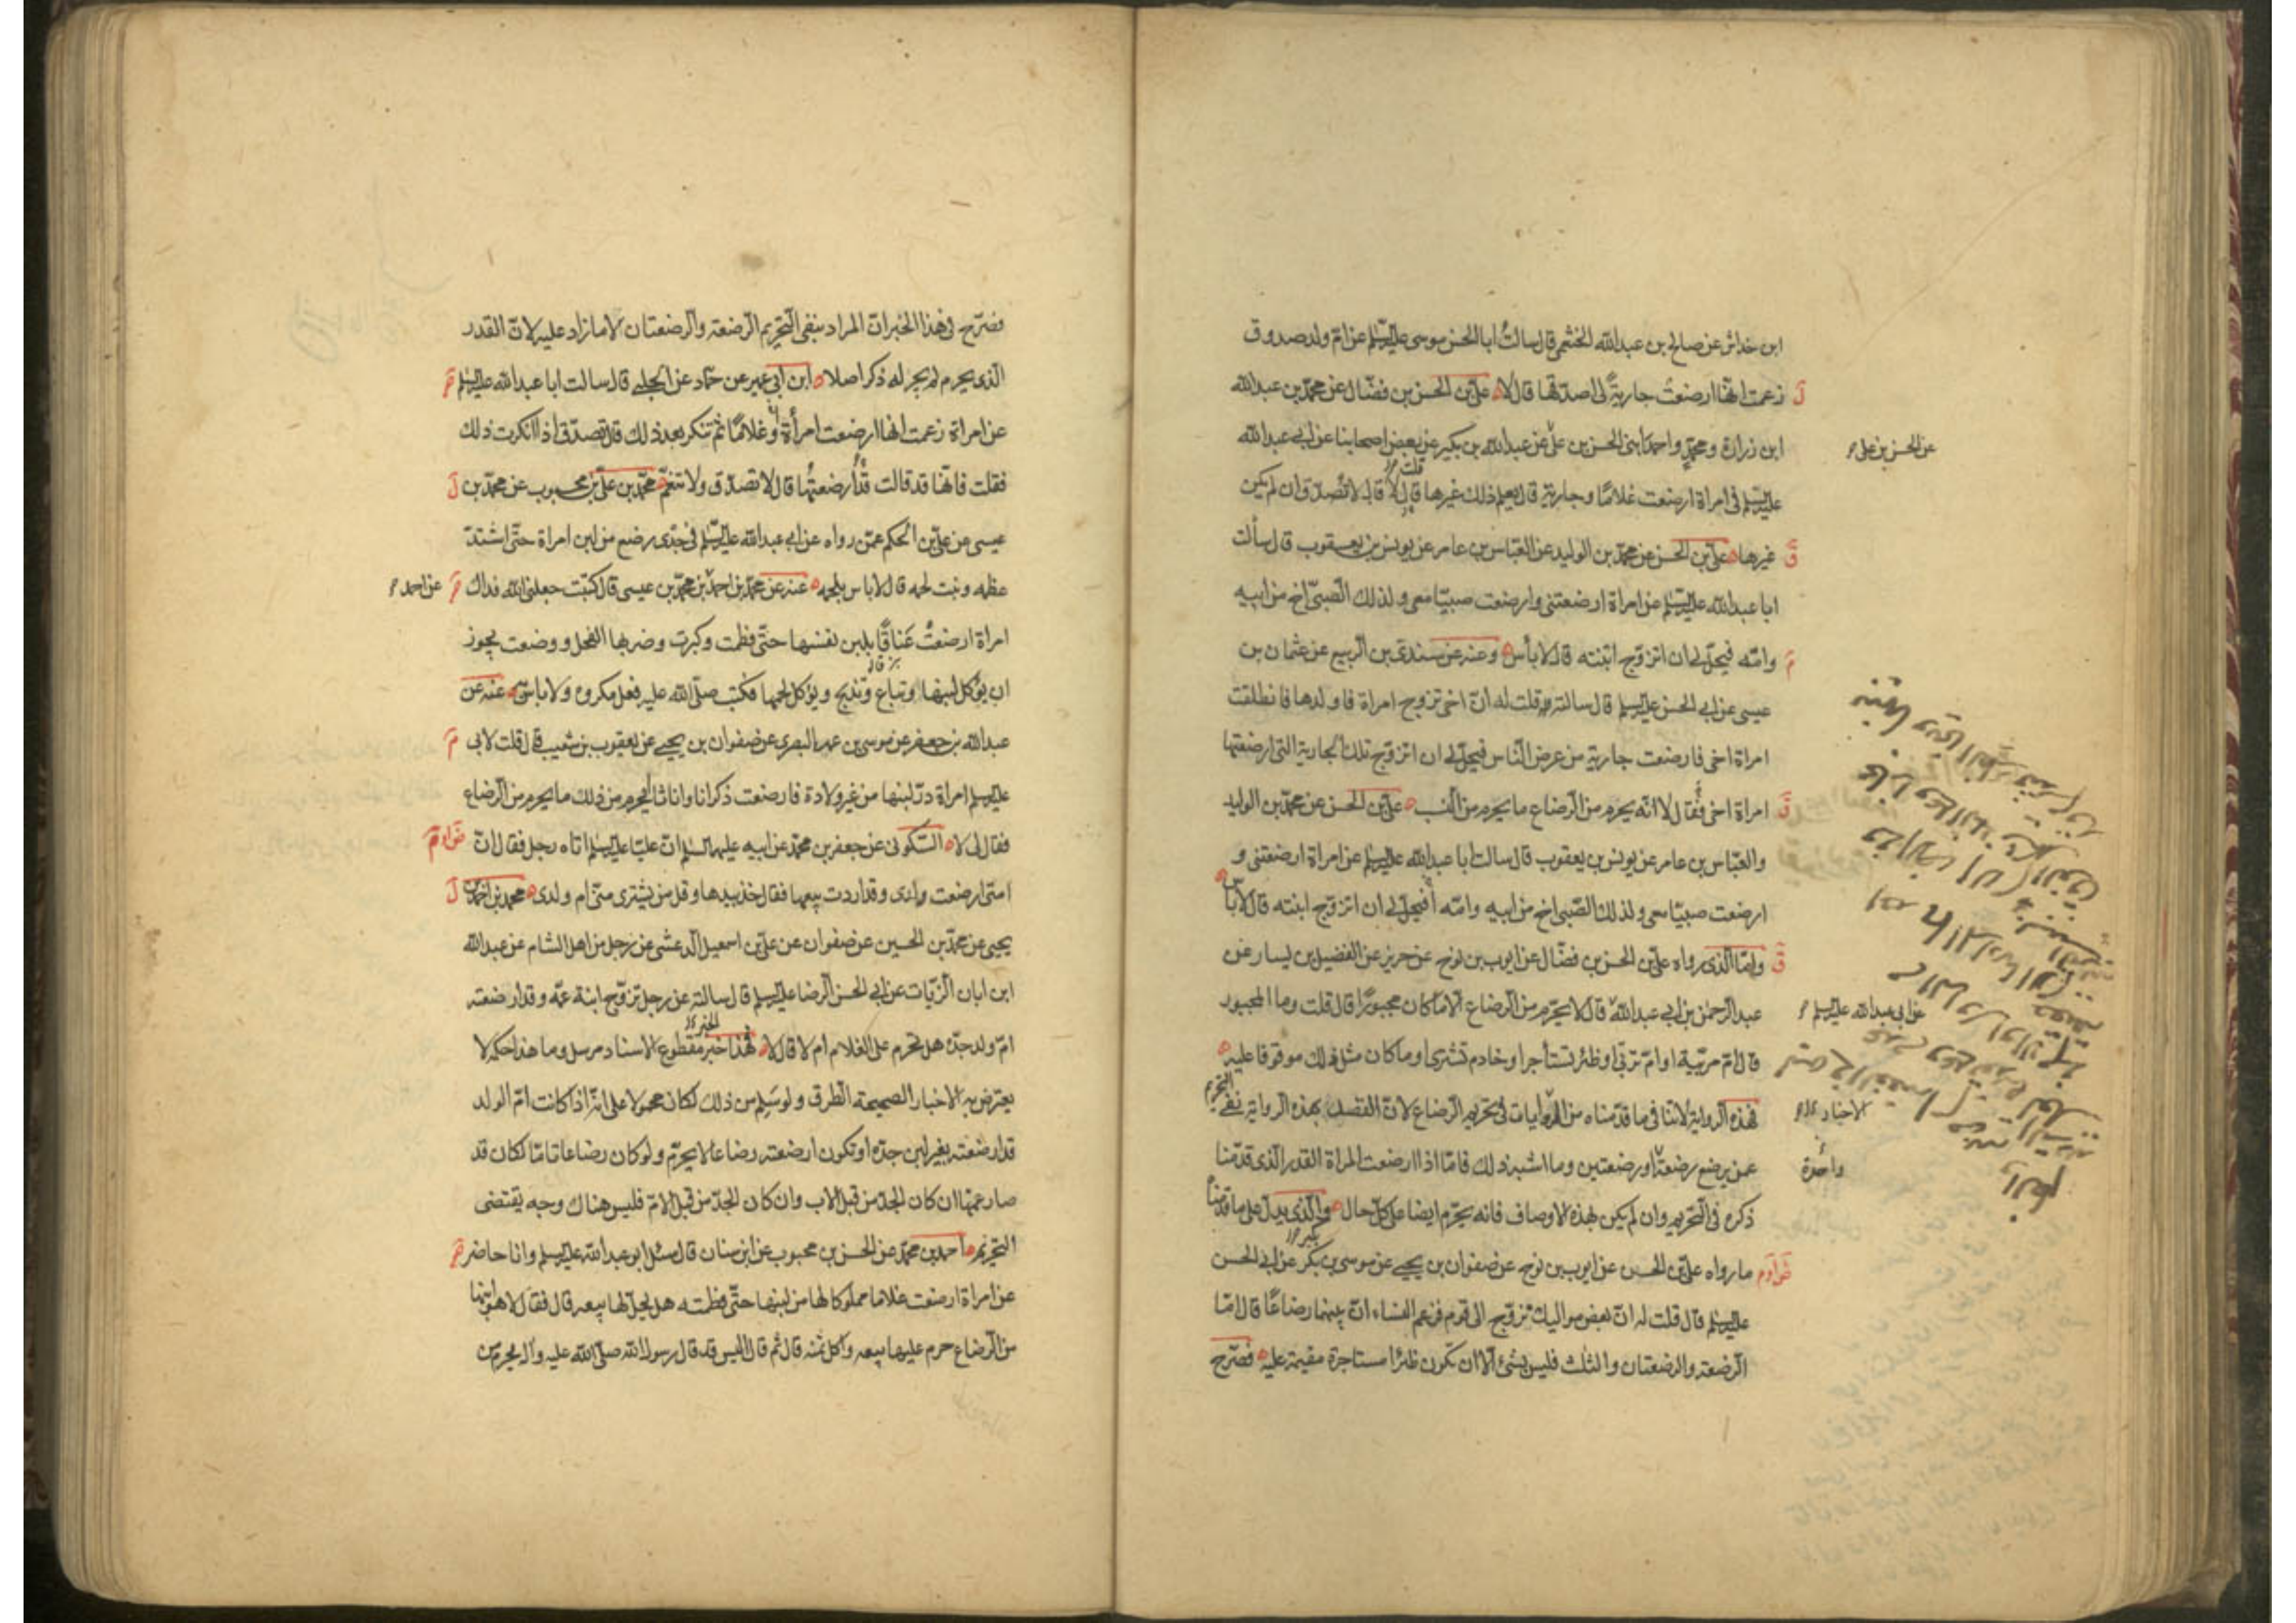 ابن خداش عن صالح بن عبدالله الخثعمي قال سالت ابا الحسن موسى عليه السلام عن ام ولد صدوق
زعمت انها ارضعت جارية لي اصدقها قال لا علي بن الحسن بن فضال عن محمد بن عبدالله
ابن زرارة ومحمد واحمد ابني الحسن بن علي عن عبدالله بن بكير عن بعض اصحابنا عن ابي عبدالله
عن الحسن بن علي
عليه السلام في امراة ارضعت غلاما وجارية قال يعلم ذلك غيرها قلت لا قال لا تصدق ان لم يكن
غيرها علي بن الحسن عن محمد بن الوليد عن العباس بن عامر عن يونس بن يعقوب قال سألت
ابا عبدالله عليه السلام عن امراة ارضعتني وارضعت صبيا معي ولذلك الصبي اخ من ابيه
وامه فيحل لي ان اتزوج ابنته قال لا بأس وعنه عن سندي بن الربيع عن عثمان بن
عيسى عن ابي الحسن عليه السلام قال سالته قلت له ان اخي تزوج امراة فاولدها فانطلقت
امراة اخي فارضعت جارية من عرض الناس فيحل لي ان اتزوج تلك الجارية التي ارضعتها
امراة اخي فقال لا انه يحرم من الرضاع ما يحرم من النسب علي بن الحسن عن محمد بن الوليد
والعباس بن عامر عن يونس بن يعقوب قال سالت ابا عبدالله عليه السلام عن امراة ارضعتني و
ارضعت صبيا معي ولذلك الصبي اخ من ابيه وامه أفيحل لي ان اتزوج ابنته قال لا باس
واما الذي رواه علي بن الحسن بن فضال عن ايوب بن نوح عن حريز عن الفضيل بن يسار عن
عبد الرحمن بن ابي عبدالله قال لا يحرم من الرضاع الا ما كان مجبورا قال قلت وما المجبور
عن ابي عبدالله عليه السلام
قال ام مربية او ام تربي او ظئر تستأجر او خادم تشترى او ما كان مثل ذلك موقوفا عليه
فهذه الرواية لا تنافي ما قدمناه من الروايات في تحريم الرضاع لان القصد بهذه الرواية نفي التحريم
الاخبار
عمن يرضع رضعة او رضعتين وما اشبه ذلك فاما اذا ارضعت المراة القدر الذي قدمنا
واحدة
ذكره في التحريم وان لم يكن بهذه الاوصاف فانه يحرم ايضا على كل حال والذي يدل على ما قدمنا
ما رواه علي بن الحسن عن ايوب بن نوح عن صفوان بن يحيى عن موسى بن بكر عن ابي الحسن
عليه السلام قال قلت له ان بعض مواليك تزوج الى قوم فزعم النساء ان بينهما رضاعا قال اما
الرضعة والرضعتان والثلث فليس بشئ الا ان تكون ظئرا مستاجرة مقيمة عليه فصرح
فصرح في هذا الخبر ان المراد بنفي التحريم الرضعة والرضعتان لا ما زاد عليه لان القدر
الذي يحرم لم يجر له ذكر اصلا ابن ابي عمير عن حماد عن الحلبي قال سالت ابا عبدالله عليه السلام
عن امراة زعمت انها ارضعت امرأة او غلاما ثم تنكر بعد ذلك قال تصدق اذا انكرت ذلك
فقلت فانها قد قالت قد أرضعتهما قال لا تصدق ولا تنعم محمد بن علي بن محبوب عن محمد بن
عيسى عن علي بن الحكم عمن رواه عن ابي عبدالله عليه السلام في جدي رضع من لبن امراة حتى اشتد
عظمه ونبت لحمه قال لا باس بلحمه عنه عن محمد بن احمد بن محمد بن عيسى قال كتبت جعلني الله فداك
عن احمد
امراة ارضعت عناقا بلبن نفسها حتى فطمت وكبرت وضربها الفحل ووضعت يجوز
ان يؤكل لبنها وتباع وتذبح ويؤكل لحمها فكتب صلى الله عليه فعل مكروه ولا باس به عنه عن
عبدالله بن جعفر عن موسى بن عمر البصري عن صفوان بن يحيى عن يعقوب بن شعيب قال قلت لابي
عليه السلام امراة در لبنها من غير ولادة فارضعت ذكرانا واناثا أيحرم من ذلك ما يحرم من الرضاع
فقال لي لا السكوني عن جعفر بن محمد عن ابيه عليهما السلام ان عليا عليه السلام اتاه رجل فقال ان
امتي ارضعت ولدي وقد اردت بيعها فقال خذ بيدها وقل من يشتري مني ام ولدي محمد بن احمد بن
يحيى عن محمد بن الحسين عن صفوان عن علي بن اسمعيل الدعشي عن رجل من اهل الشام عن عبدالله
ابن ابان الزيات عن ابي الحسن الرضا عليه السلام قال سالته عن رجل تزوج ابنة عمه وقد ارضعته
ام ولد جده هل تحرم على الغلام ام لا قال لا فهذا خبر مقطوع الاسناد مرسل وما هذا حكمه لا
يعترض به الاخبار الصحيحة الطرق ولو سلم من ذلك لكان محمولا على انه اذا كانت ام الولد
قد ارضعته بغير لبن جده او تكون ارضعته رضاعا لا يحرم ولو كان رضاعا تاما لكان قد
صار عمها ان كان الجد من قبل الاب وان كان الجد من قبل الام فليس هناك وجه يقتضي
التحريم احمد بن محمد عن الحسن بن محبوب عن ابن سنان قال سئل ابو عبدالله عليه السلام وانا حاضر
عن امراة ارضعت غلاما مملوكا لها من لبنها حتى فطمته هل يحل لها بيعه قال فقال لا هو ابنها
من الرضاع حرم عليها بيعه وأكل ثمنه قال ثم قال اليس قد قال رسول الله صلى الله عليه وآله يحرم من